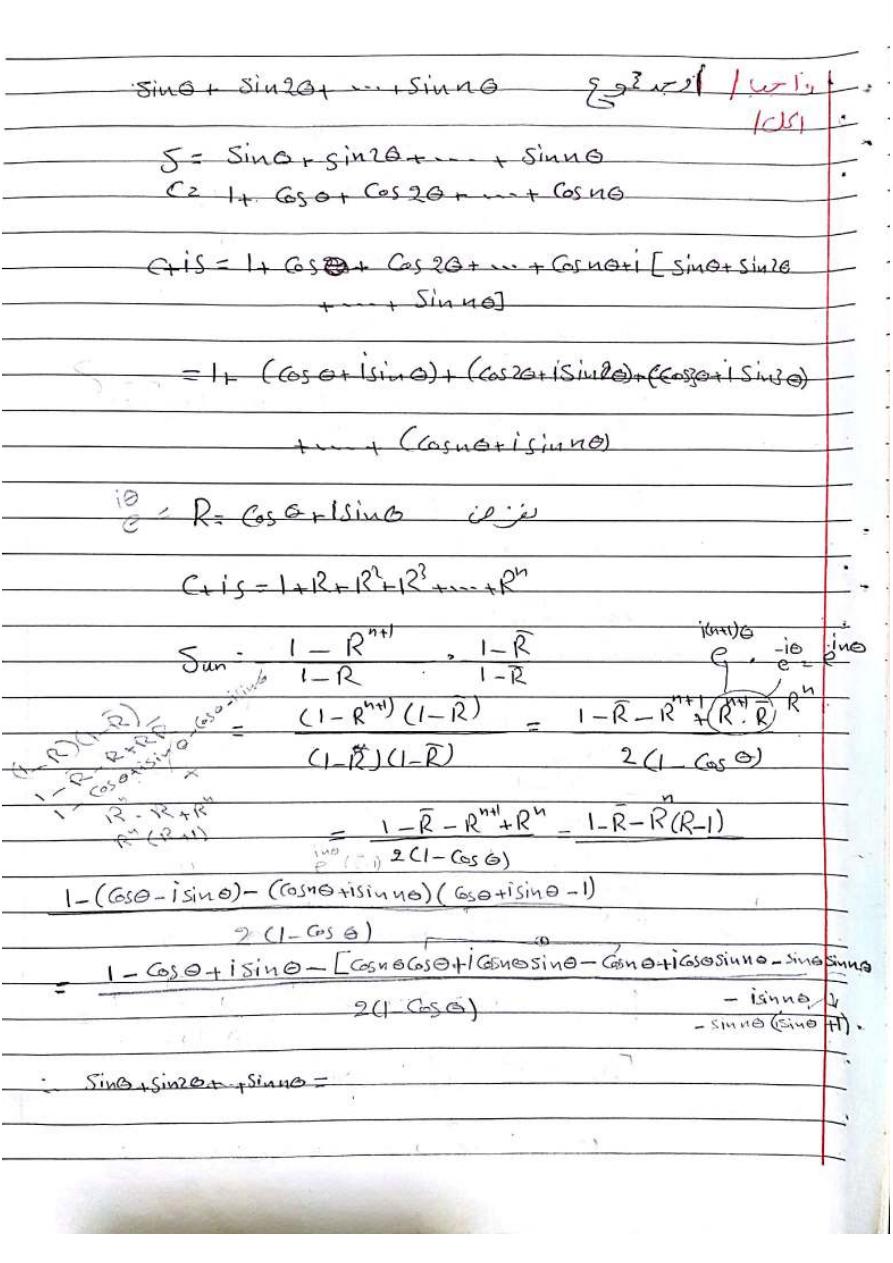 واجب / أوجد مجموع sinθ + sin2θ + ... + sin nθ
الحل /
S = sinθ + sin2θ + .... + sin nθ
C = 1 + cosθ + cos2θ + ...... + cos nθ
C+is = 1 + cosθ + cos2θ + ... + cos nθ + i [ sinθ + sin2θ
+ ..... + sin nθ]
= 1 + (cosθ + i sinθ) + (cos2θ + i sin2θ) + (cos3θ + i sin3θ)
+ ..... + (cos nθ + i sin nθ)
e^{iθ} = R = cosθ + i sinθ نفرض
C+is = 1 + R + R² + R³ + .... + Rⁿ
Sum = \frac{1 - R^{n+1}}{1 - R} . \frac{1 - R̄}{1 - R̄} e^{i(n+1)θ} . e^{-iθ} = e^{inθ}
= \frac{(1 - R^{n+1})(1 - R̄)}{(1 - R)(1 - R̄)} = \frac{1 - R̄ - R^{n+1} + (R^{n+1} . R̄)}{2(1 - cosθ)} Rⁿ
(1 - R)(1 - R̄)
1 - R̄ - R + R R̄
1 - cosθ + i sinθ - cosθ - i sinθ
Rⁿ (R+1)
= \frac{1 - R̄ - R^{n+1} + Rⁿ}{2(1 - cosθ)} = 1 - R̄ - Rⁿ(R - 1)
\frac{1 - (cosθ - i sinθ) - (cos nθ + i sin nθ)(cosθ + i sinθ - 1)}{2(1 - cosθ)}
= \frac{1 - cosθ + i sinθ - [cos nθ cosθ + i cos nθ sinθ - cos nθ + i cosθ sin nθ - sinθ sin nθ}{2(1 - cosθ)}
- i sin nθ
- sin nθ (i sinθ + 1).
∴ sinθ + sin2θ + ... + sin nθ =